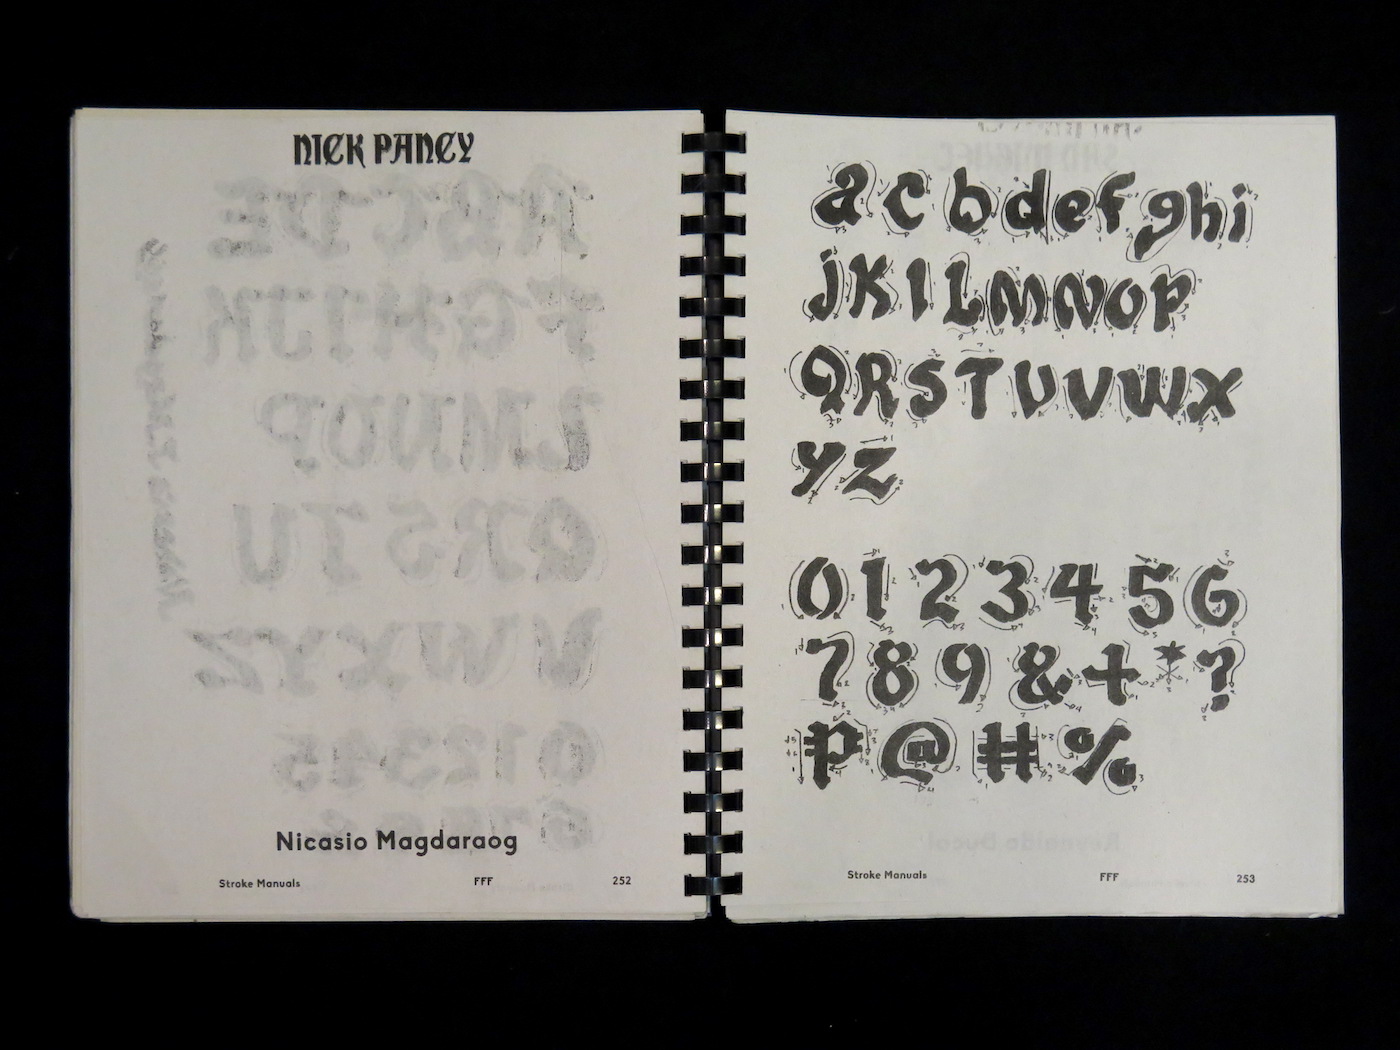 NICK PANCY
Nicasio Magdaraog
Stroke Manuals FFF 252
a c b d e f g h i
j K l L M N O P
Q R S T U V W X
Y Z
0 1 2 3 4 5 6
7 8 9 & + * ?
₱ @ # %
Stroke Manuals FFF 253